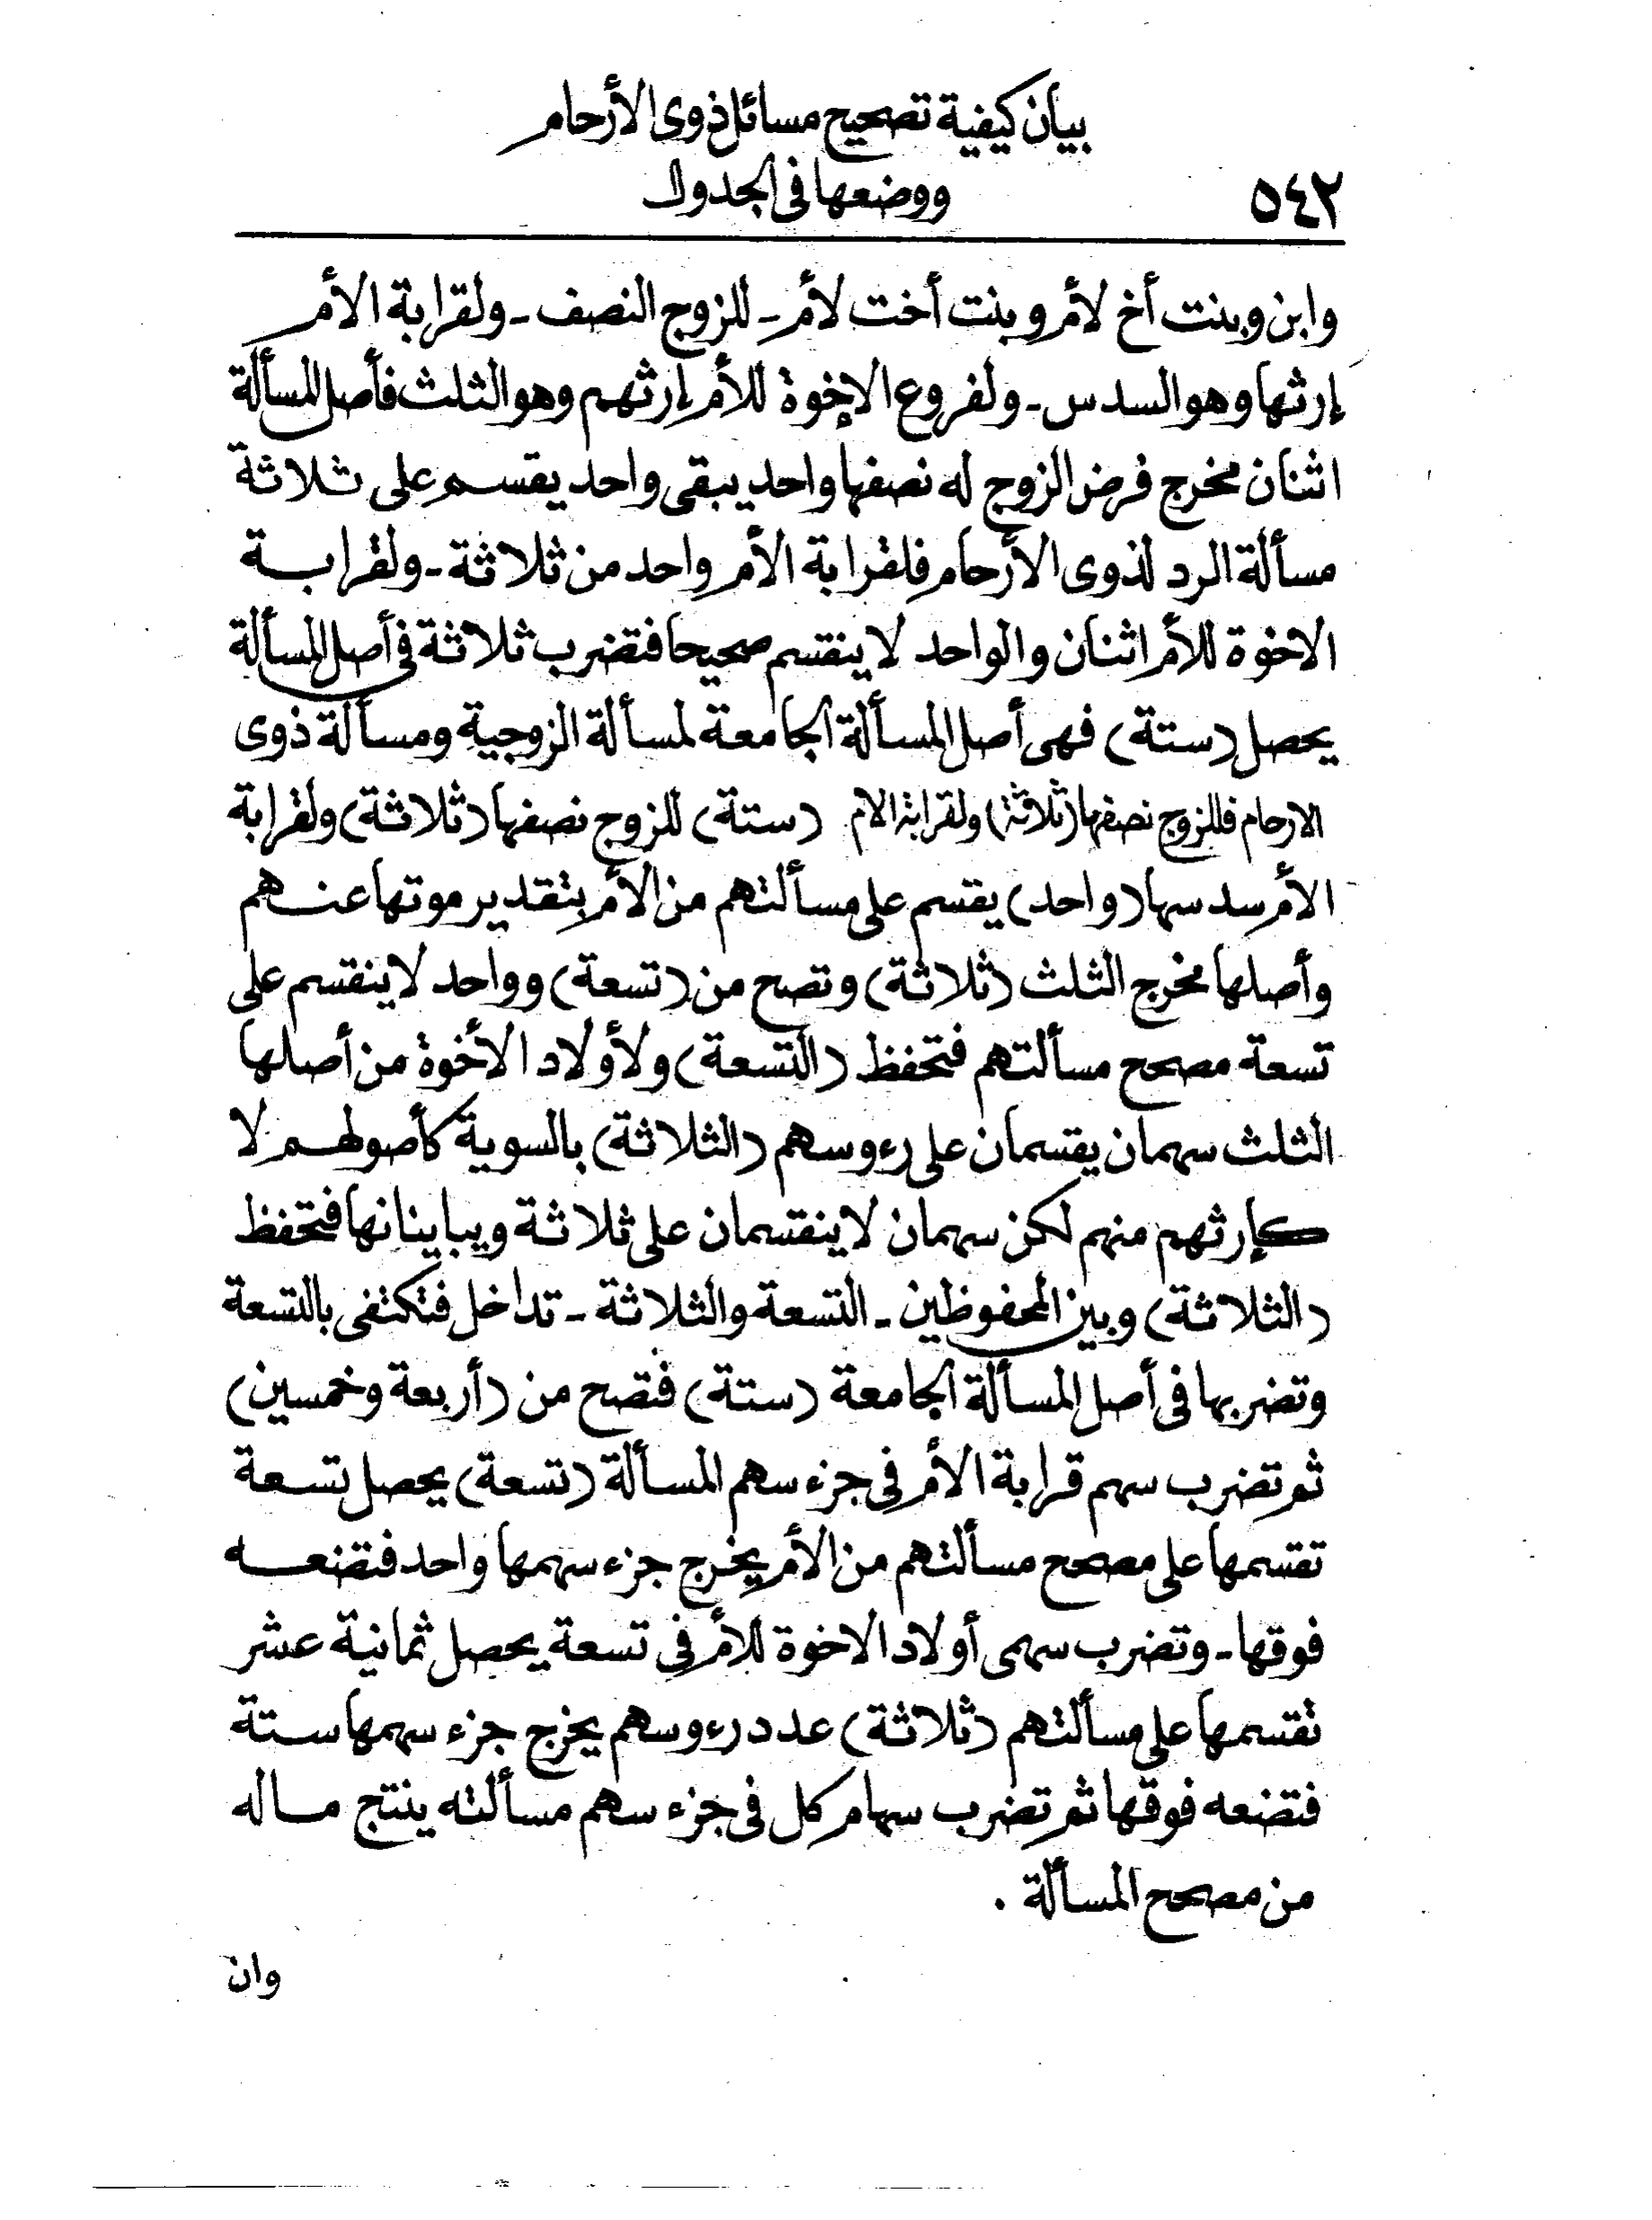 بيان كيفية تصحيح مسائل ذوى الأرحام
ووضعها فى الجدول
٥٤٢
وابن وبنت أخ لأم وبنت أخت لأم ـ للزوج النصف ـ ولقرابة الأم
إرثها وهو السدس ـ ولفروع الإخوة للأم إرثهم وهو الثلث فأصل المسألة
اثنان مخرج فرض الزوج له نصفها واحد يبقى واحد يقسم على ثلاثة
مسألة الرد لذوى الأرحام فلقرابة الأم واحد من ثلاثة ـ ولقرابة
الاخوة للأم اثنان والواحد لا ينقسم صحيحا فتضرب ثلاثة فى أصل المسألة
يحصل (ستة) فهى أصل المسألة الجامعة لمسألة الزوجية ومسألة ذوى
الارحام فللزوج نصفها (ثلاثة) ولقرابة الام (ستة) للزوج نصفها (ثلاثة) ولقرابة
الأم سدسها (واحد) يقسم على مسألتهم من الأم بتقدير موتها عنهم
وأصلها مخرج الثلث (ثلاثة) وتصح من (تسعة) وواحد لا ينقسم على
تسعة مصحح مسألتهم فتحفظ (التسعة) ولأولاد الأخوة من أصلها
الثلث سهمان يقسمان على رءوسهم (الثلاثة) بالسوية كأصولهم لا
كإرثهم منهم لكن سهمان لا ينقسمان على ثلاثة ويباينانها فتحفظ
(الثلاثة) وبين المحفوظين ـ التسعة والثلاثة ـ تداخل فتكتفى بالتسعة
وتضربها فى أصل المسألة الجامعة (ستة) فتصح من (أربعة وخمسين)
ثم تضرب سهم قرابة الأم فى جزء سهم المسألة (تسعة) يحصل تسعة
تقسمها على مصحح مسألتهم من الأم يخرج جزء سهمها واحد فتضعه
فوقها ـ وتضرب سهمى أولاد الاخوة للأم فى تسعة يحصل ثمانية عشر
تقسمها على مسألتهم (ثلاثة) عدد رءوسهم يخرج جزء سهمها ستة
فتضعه فوقها ثم تضرب سهام كل فى جزء سهم مسألته ينتج ماله
من مصحح المسألة .
وان